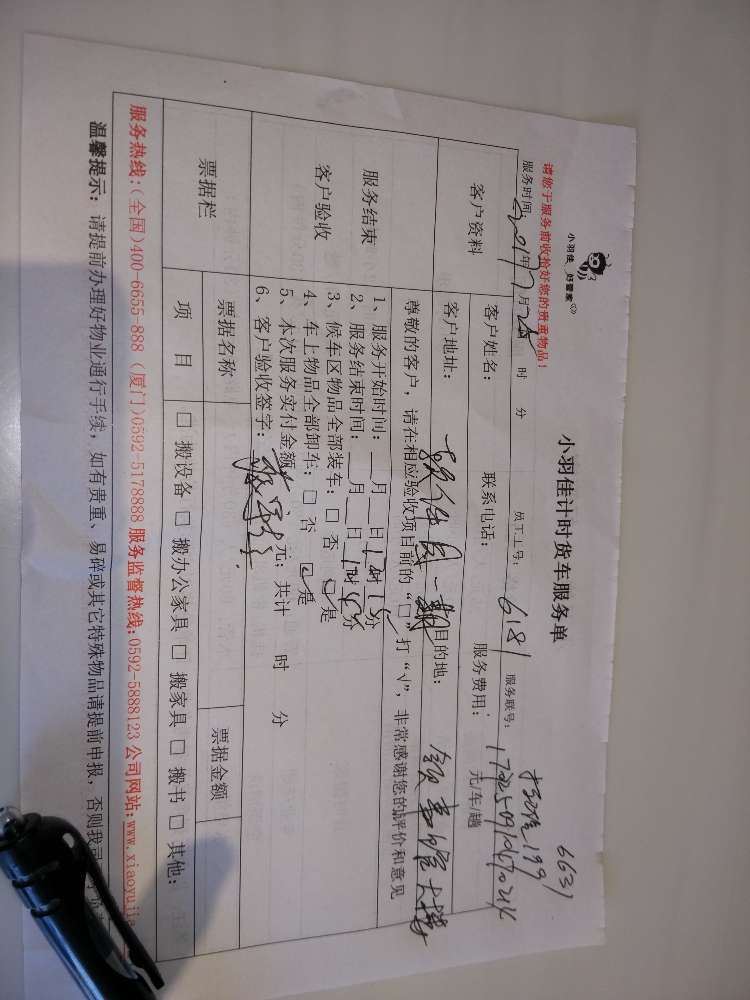 小羽佳 好管家
请您于服务前收拾好您的贵重物品！
小羽佳计时货车服务单
6631
服务时间: 年 7 月 时 分 员工工号: 6181 服务联号:
客户资料 客户姓名: 联系电话: 服务费用: 元/车/趟
客户地址: 软件园一期 目的地: 领事馆大楼
尊敬的客户，请在相应验收项目前的“□”打“√”，非常感谢您的评价和意见
服务结束
客户验收
1、服务开始时间: __月__日 时15分
2、服务结束时间: __月__日 时 分
3、候车区物品全部装车: □ 否 ☑是
4、车上物品全部卸车: □ 否 ☑是
5、本次服务实付金额: 元; 共计 时 分
6、客户验收签字:
票据栏 票据名称 票据金额
项 目 □ 搬设备 □ 搬办公家具 □ 搬家具 □ 搬书 □ 其他:
服务热线:(全国)400-6655-888 (厦门)0592-5178888 服务监督热线:0592-5888123 公司网站:www.xiaoyujia
温馨提示: 请提前办理好物业通行手续，如有贵重、易碎或其它特殊物品请提前申报，否则我司